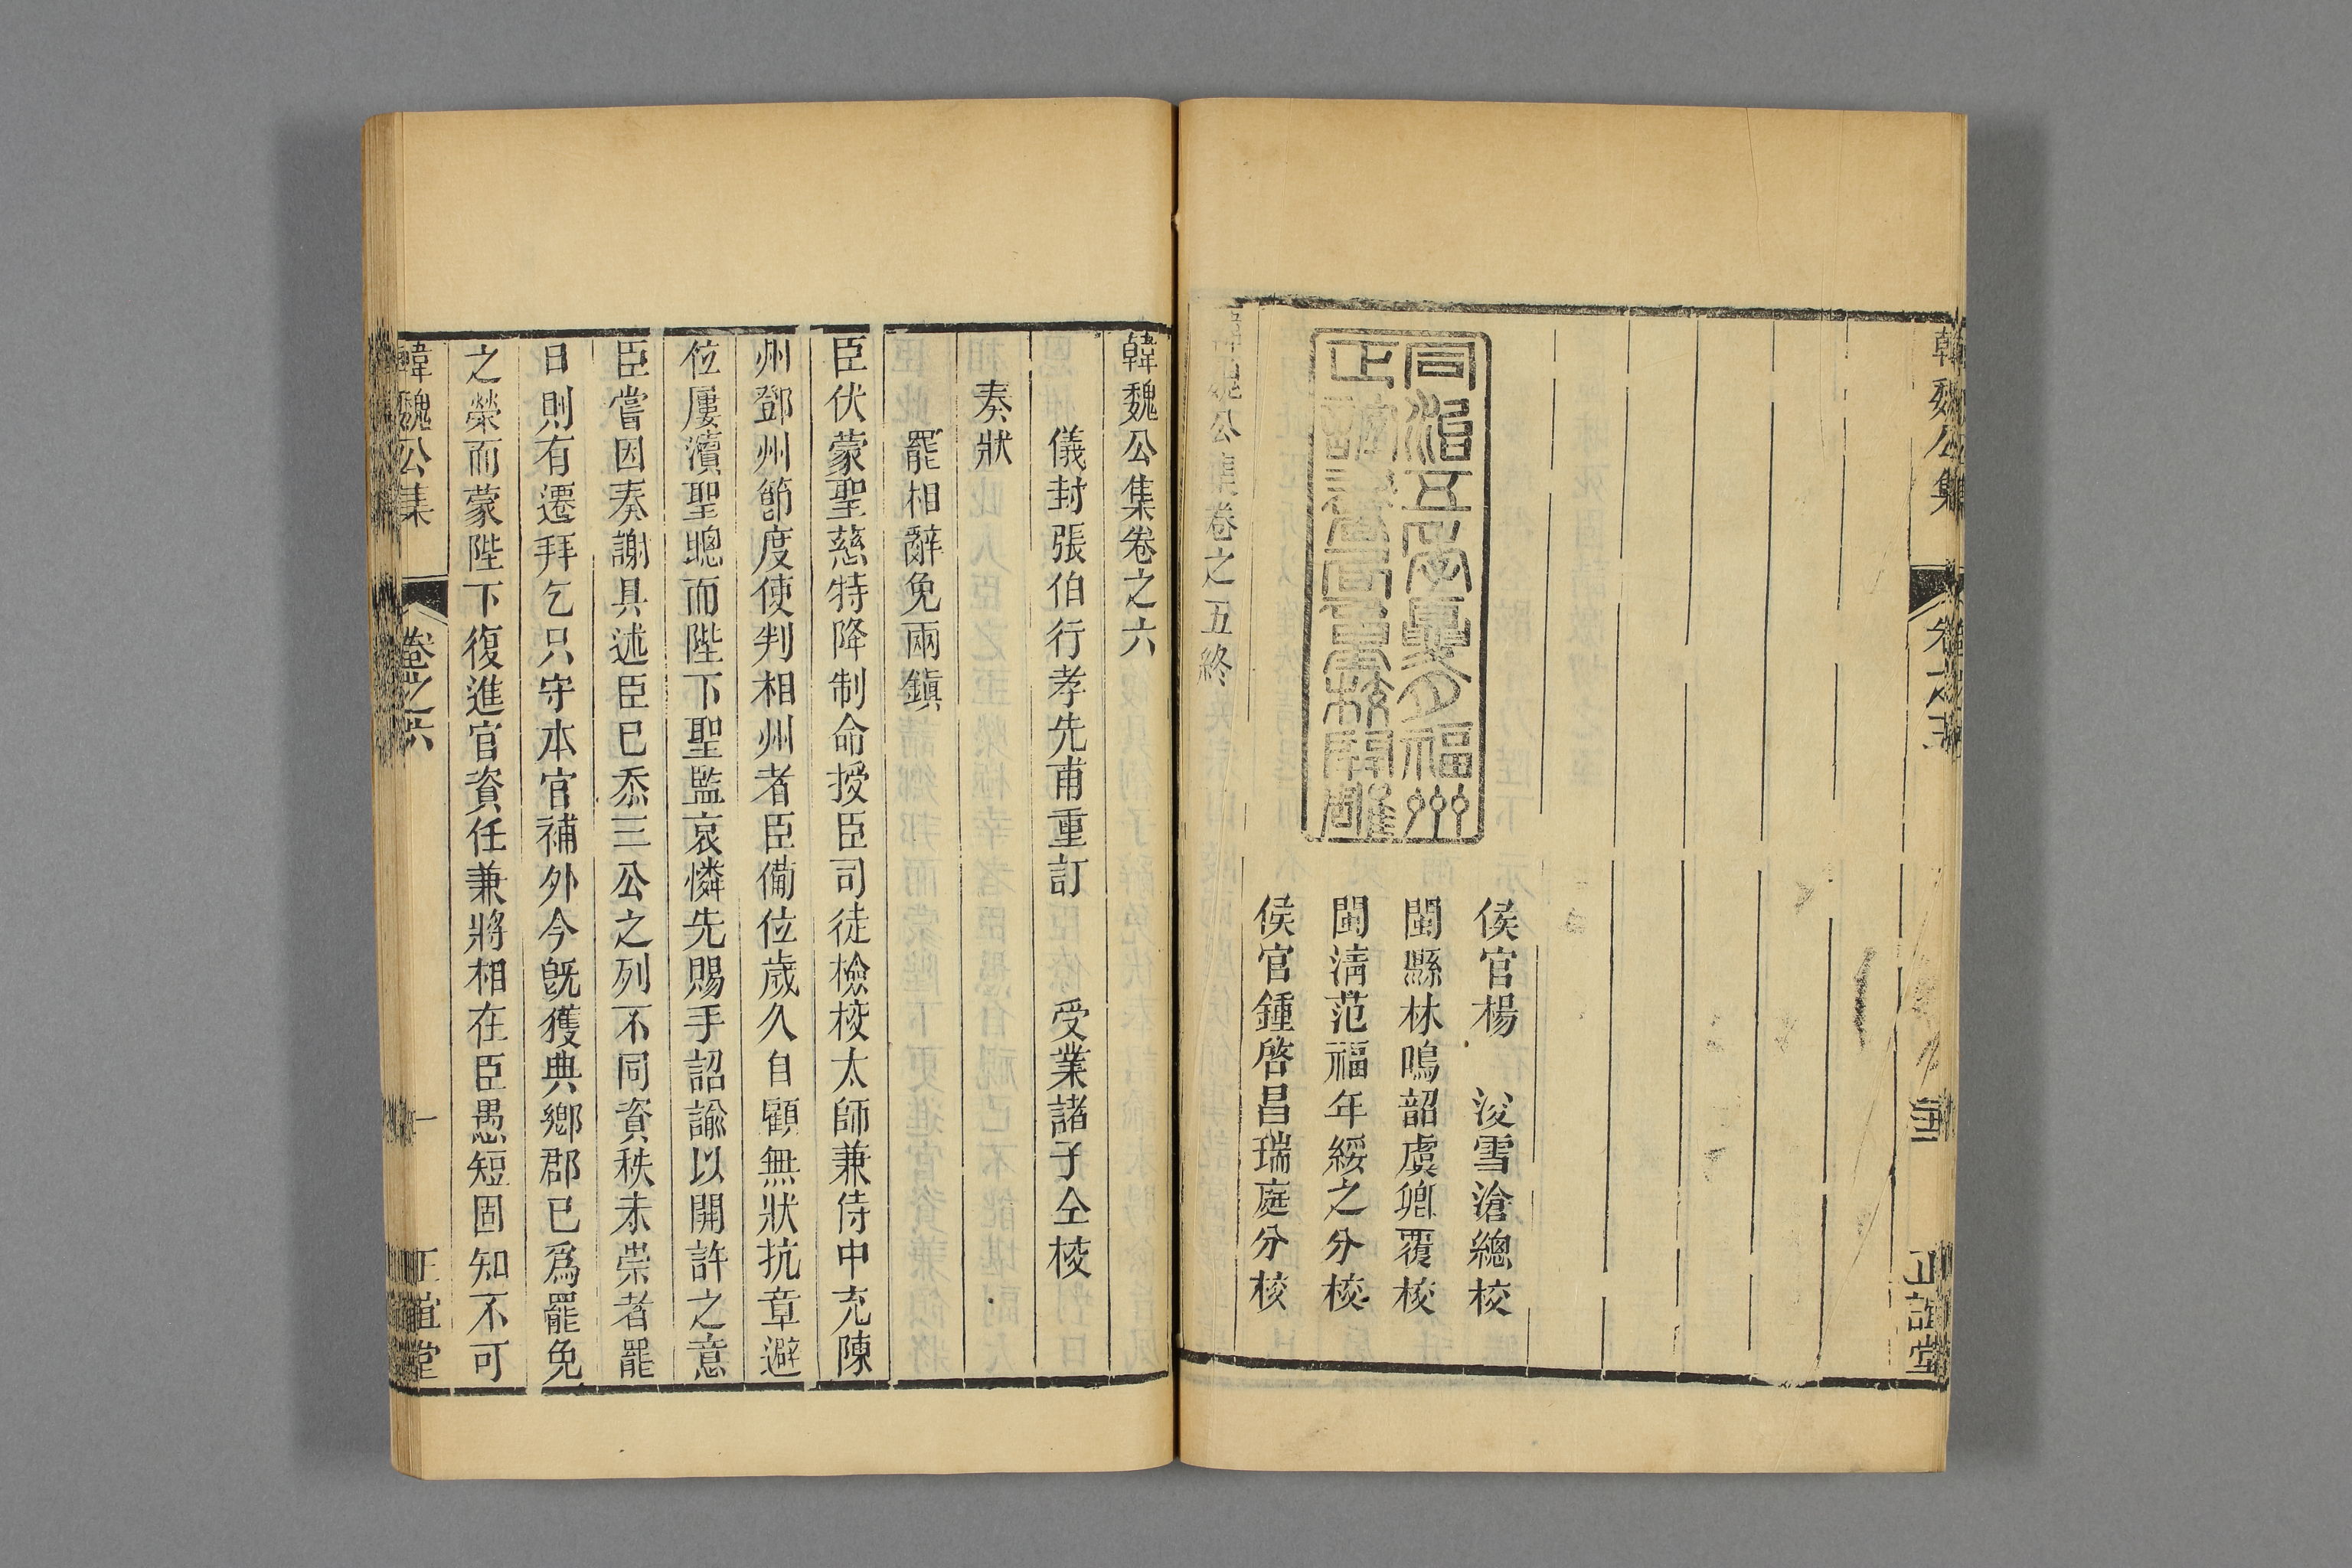 韓魏公集
卷之五
正誼堂
同治五年夏月福州
正誼書局重校開雕
侯官楊　浚雪滄總校
閩縣林鳴韶虞卿覆校
閩淸范福年綏之分校
侯官鍾啓昌瑞庭分校
韓魏公集卷之五終
韓魏公集卷之六
儀封張伯行孝先甫重訂　受業諸子仝校
奏狀
罷相辭免兩鎭
臣伏蒙聖慈特降制命授臣司徒檢校太師兼侍中充陳
州鄧州節度使判相州者臣備位歲久自顧無狀抗章避
位屢瀆聖聰而陛下聖監哀憐先賜手詔諭以開許之意
臣嘗因奏謝具述臣已忝三公之列不同資秩未崇者罷
日則有遷拜乞只守本官補外今旣獲典鄕郡已爲罷免
之榮而蒙陛下復進官資任兼將相在臣愚短固知不可
韓魏公集
卷之六
一
正誼堂